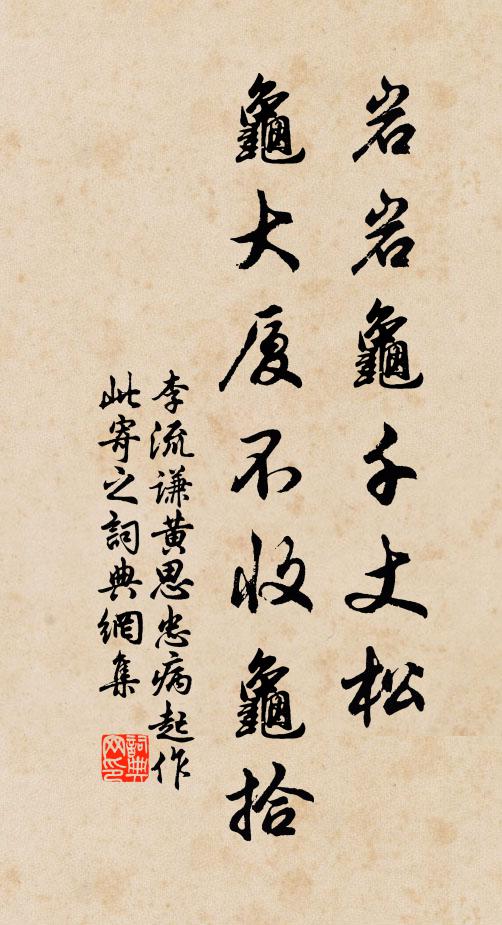 岩岩龜千丈松
龜大厦不收龜拾
李流謙黄思忠病起作
此寄之詞典網集
詞典網印